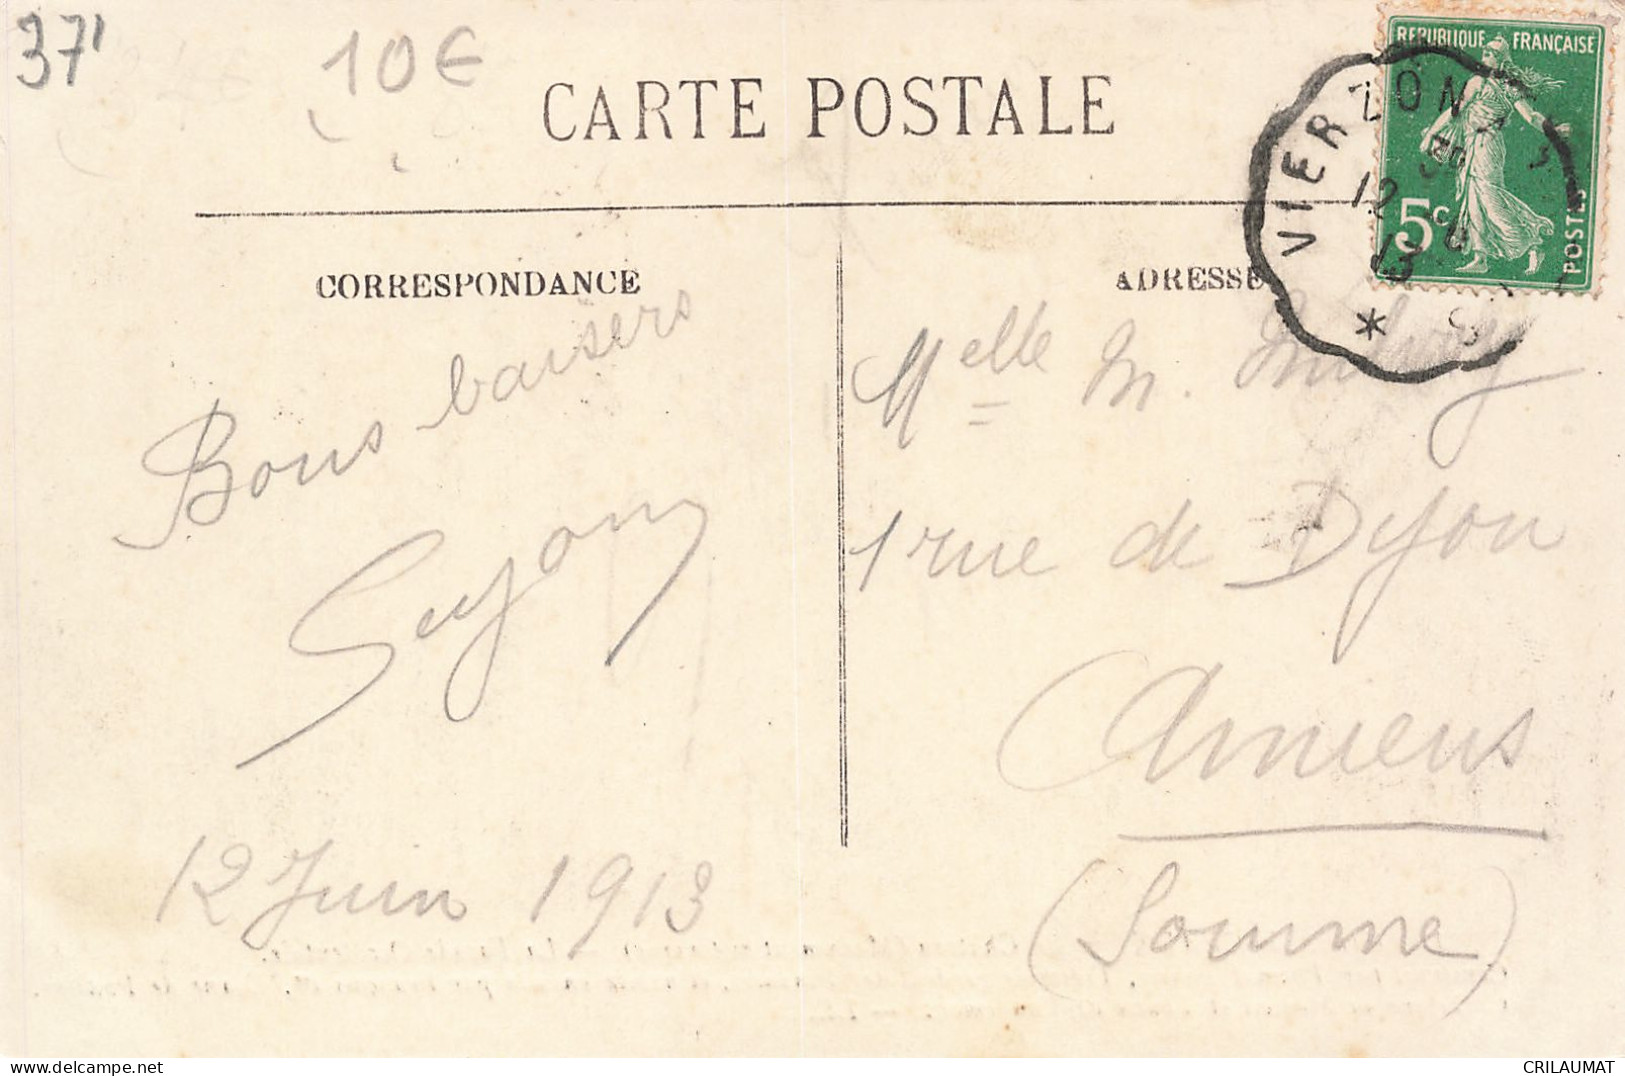 37'
10€
CARTE POSTALE
RÉPUBLIQUE FRANÇAISE
5c
POSTES
VIERZON
12
13
*
CORRESPONDANCE
ADRESSE
Bons baisers
12 Juin 1913
Melle M.
1 rue de Dijon
Amiens
(Somme)
CRILAUMAT